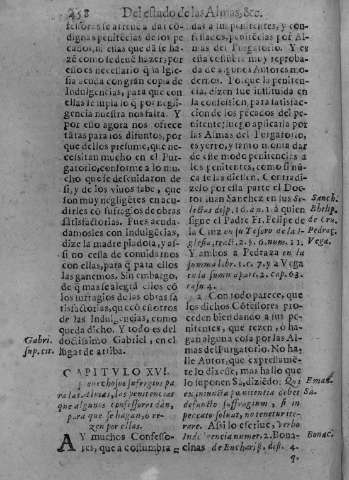 258 Del estado de las Almas, &c.
fessores se atreuã a dar cõ-
dignas penitẽcias de los pe-
cados, ni ellas que dã se ha-
zẽ como se deuẽ hazer; por
esso es necessario q̃ la Igle-
sia acuda con grãn copia de
Indulgẽcias, para que con
ellas se supla lo q̃ por negli-
gencia nuestra nos falta. Y
por esso agora nos ofrece
tãtas para los difuntos, por
que dellos presume, que ne-
cessitan mucho en el Pur-
gatorio, conforme a lo mu-
cho en q̃ se descuidaron de
si, y de los viuos sabe, que
son muy negligẽtes en acu-
dirles cõ sufragios de obras
satisfactorias. Pues acuda-
damoslos con Indulgẽcias,
dize la madre piadosa, y assi
no cessa de combidarnos
con ellas, para q̃ para ellos
las ganemos. Sin embargo,
de q̃ mas se alegrã ellos cõ
los sufragios de las obras sa
tisfactorias, que cõ estotros
de las Indulgencias, como
queda dicho. Y todo es del
doctissimo Gabriel, en el
lugar de arriba.
Gabri.
sup. cit.
CAPITVLO XVI.
para que se hagan, o re-
zen por ellas.
AY muchos Confesso-
res, que a costumbra-
a sus penitentes, y con-
fessados, penitẽcias por Al-
mas del Purgatorio. Y es
de algunos Autores mo-
dernos. Porque la peniten-
cia, dizen fue instituida en
la confession, para satisfac-
cion de los pecados del pe-
nitente; luego aplicarla por
las Almas del Purgatorio,
es yerro, y tanto monta dar
de esse modo penitencias a
los penitentes, como si nũ-
ca se las diessen. Contradi-
zelo por esta parte el Doc-
tor Iuan Sanchez en sus Se-
lectas disp. 16. au. 1. a quien
sigue el Padre Fr. Felipe de
la Cruz en su Tesoro de la I-
glesia, tract. 2. §. 6. num. 11.
Y ambos a Pedraza en la
summa libr. 1. c. 7. y a Vega
en la summa part. 2. cap. 63.
casu 4.
Sanch.
Phelip.
de Cru.
Pedraç.
Vega.
2 Con todo parece, que
dichos Cõfessores pro-
ceden bien dando a sus pe-
nitentes, que rezen, o ha-
gan alguna cosa por las Al-
mas del Purgatorio. No ha-
lle Autor, que expressamẽ-
te lo diesse, mas hallo que
lo suponen Sà, diziẽdo: Qui
in pœnitentia debes
defuncto suffragium, si in
peccato soluat, non tenetur ite-
rare. Assi lo escriue, verbo
Indulgentia numer. 2. Bona-
cinas de Eucharist. disp. 4.
Sà.
Bonac.
q.